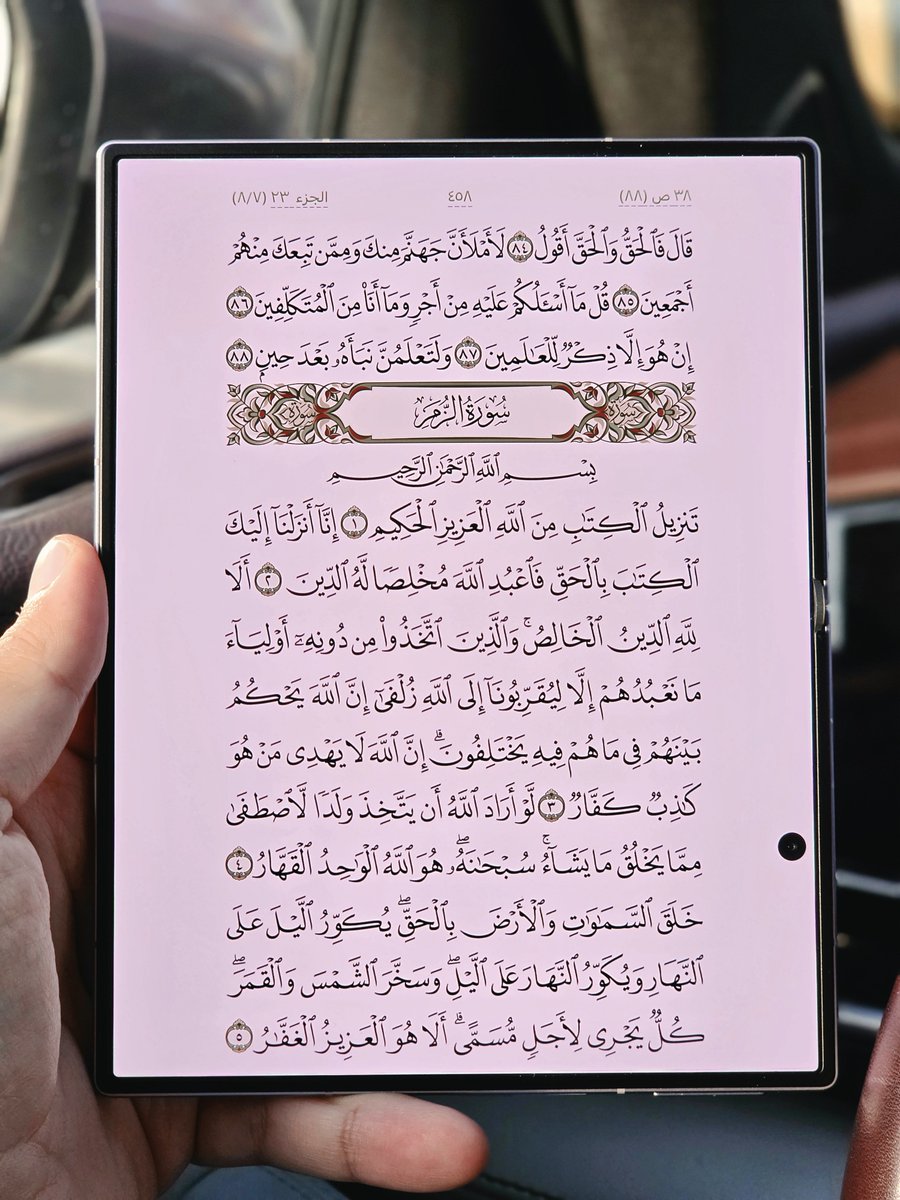 ٣٨ ص (٨٨) ٤٥٨ الجزء ٢٣ (٨/٧)
قَالَ فَٱلْحَقُّ وَٱلْحَقَّ أَقُولُ ٨٤ لَأَمْلَأَنَّ جَهَنَّمَ مِنكَ وَمِمَّن تَبِعَكَ مِنْهُمْ
أَجْمَعِينَ ٨٥ قُلْ مَآ أَسْـَٔلُكُمْ عَلَيْهِ مِنْ أَجْرٍ وَمَآ أَنَا۠ مِنَ ٱلْمُتَكَلِّفِينَ ٨٦
إِنْ هُوَ إِلَّا ذِكْرٌ لِّلْعَٰلَمِينَ ٨٧ وَلَتَعْلَمُنَّ نَبَأَهُۥ بَعْدَ حِينٍۭ ٨٨
سُورَةُ الزُّمَرِ
بِسْمِ ٱللَّهِ ٱلرَّحْمَٰنِ ٱلرَّحِيمِ
تَنزِيلُ ٱلْكِتَٰبِ مِنَ ٱللَّهِ ٱلْعَزِيزِ ٱلْحَكِيمِ ١ إِنَّآ أَنزَلْنَآ إِلَيْكَ
ٱلْكِتَٰبَ بِٱلْحَقِّ فَٱعْبُدِ ٱللَّهَ مُخْلِصًا لَّهُ ٱلدِّينَ ٢ أَلَا
لِلَّهِ ٱلدِّينُ ٱلْخَالِصُ ۚ وَٱلَّذِينَ ٱتَّخَذُوا۟ مِن دُونِهِۦٓ أَوْلِيَآءَ
مَا نَعْبُدُهُمْ إِلَّا لِيُقَرِّبُونَآ إِلَى ٱللَّهِ زُلْفَىٰٓ إِنَّ ٱللَّهَ يَحْكُمُ
بَيْنَهُمْ فِى مَا هُمْ فِيهِ يَخْتَلِفُونَ ۗ إِنَّ ٱللَّهَ لَا يَهْدِى مَنْ هُوَ
كَٰذِبٌ كَفَّارٌ ٣ لَّوْ أَرَادَ ٱللَّهُ أَن يَتَّخِذَ وَلَدًا لَّٱصْطَفَىٰ
مِمَّا يَخْلُقُ مَا يَشَآءُ ۚ سُبْحَٰنَهُۥ ۖ هُوَ ٱللَّهُ ٱلْوَٰحِدُ ٱلْقَهَّارُ ٤
خَلَقَ ٱلسَّمَٰوَٰتِ وَٱلْأَرْضَ بِٱلْحَقِّ ۖ يُكَوِّرُ ٱلَّيْلَ عَلَى
ٱلنَّهَارِ وَيُكَوِّرُ ٱلنَّهَارَ عَلَى ٱلَّيْلِ ۖ وَسَخَّرَ ٱلشَّمْسَ وَٱلْقَمَرَ ۖ
كُلٌّ يَجْرِى لِأَجَلٍ مُّسَمًّى ۗ أَلَا هُوَ ٱلْعَزِيزُ ٱلْغَفَّٰرُ ٥